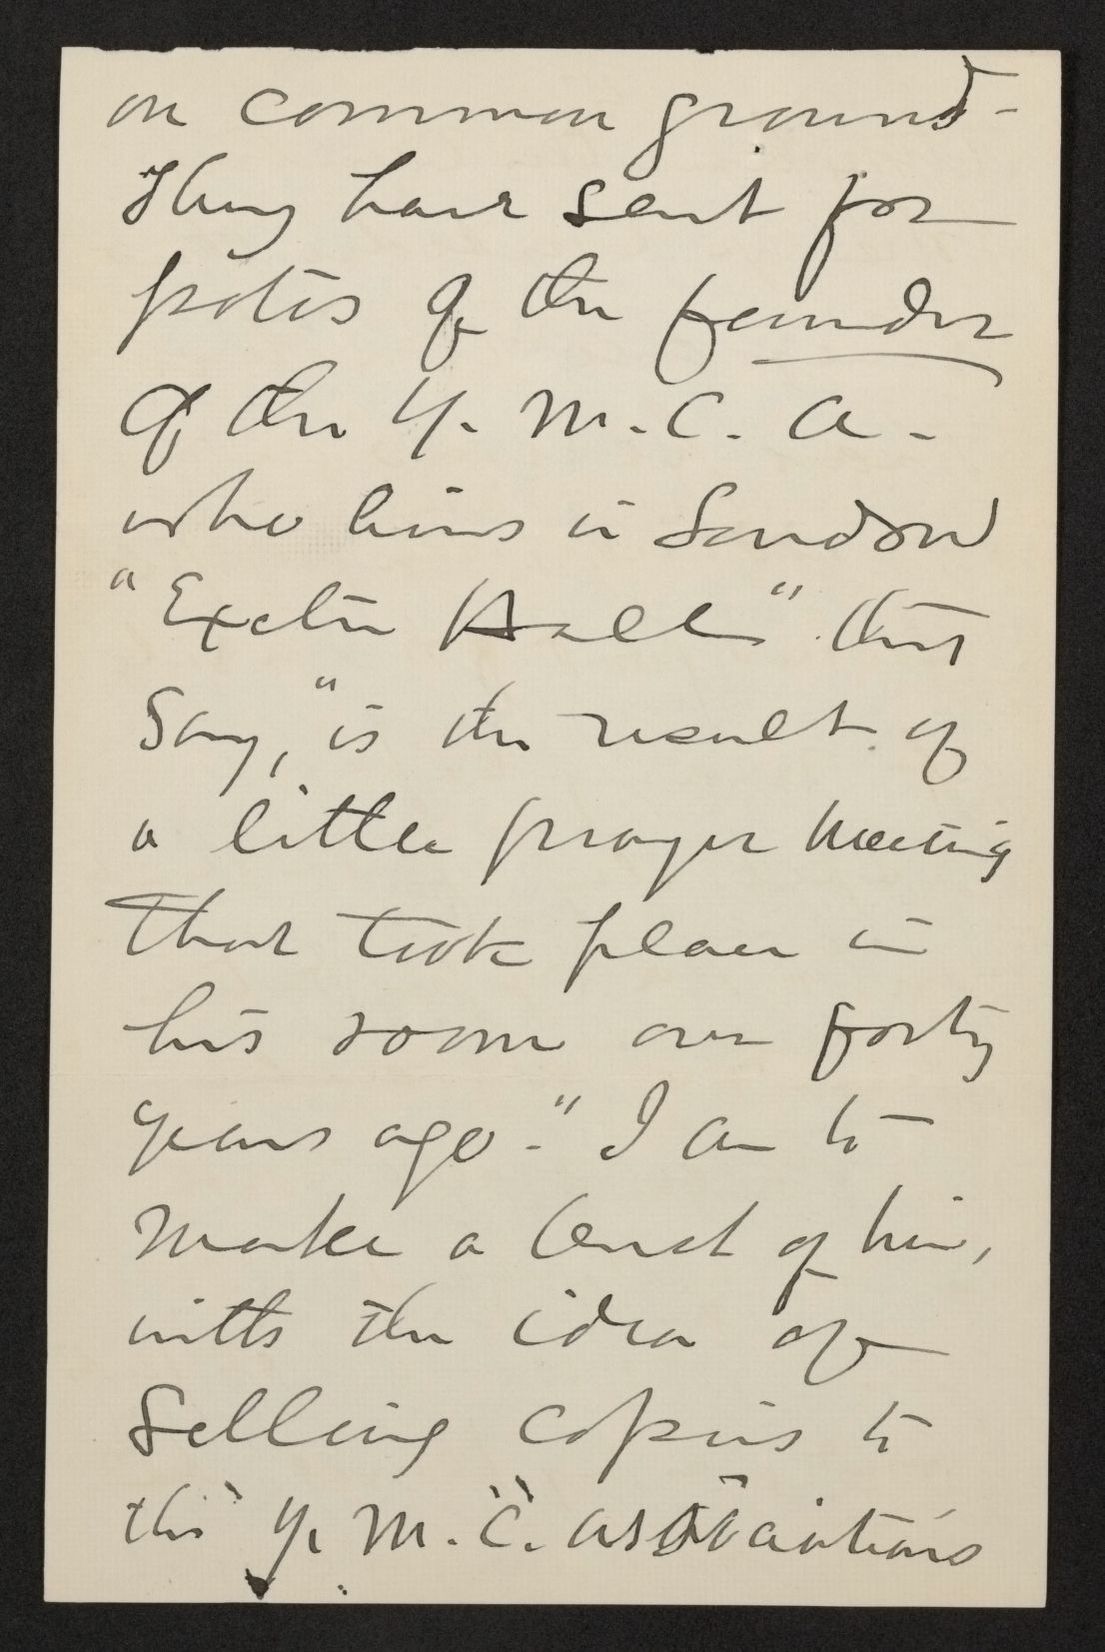 on common ground -
They have sent for
fotos of the founder
of the Y. M. C. A -
who lives in London
"Exeter Hall" they
say, "is the result of
a little prayer meeting
that took place in
his room over forty
years ago." I am to
make a bust of him,
with the idea of
selling copies to
the Y. M. C. associations